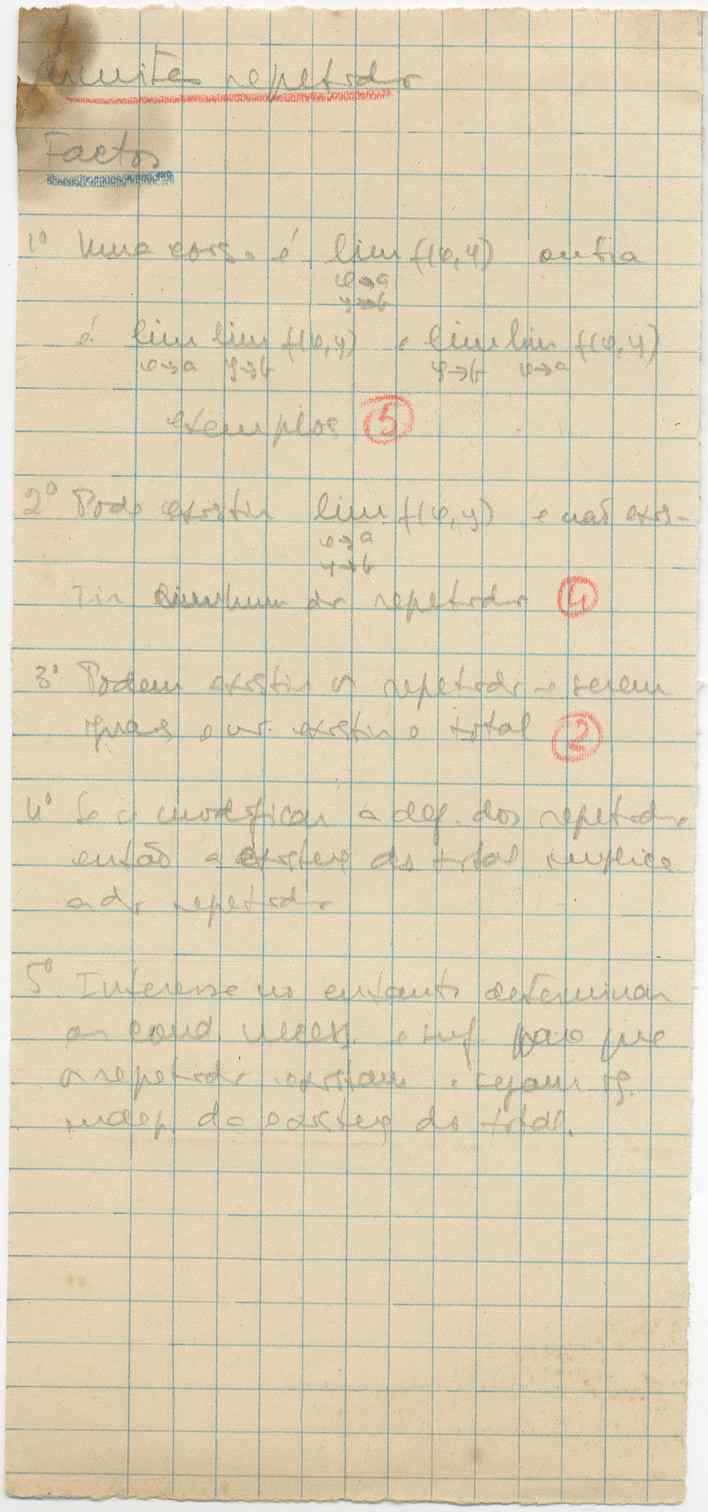 Limites repetidos
Factos
1º Uma coisa é lim f(x,y) outra
x→a
y→b
é lim lim f(x,y) e lim lim f(x,y)
x→a y→b y→b x→a
exemplos 5
2º Pode existir lim f(x,y) e não exis-
x→a
y→b
tir nenhum dos repetidos 4
3º Podem existir os repetidos e serem
iguais e existir o total 2
4º Se se modificar a def. dos repetidos
então a do total implica
a dos repetidos
5º Interessa no entanto determinar
as cond. necess. e suf. para que
os repetidos existam e sejam ig.
indep. da do total.